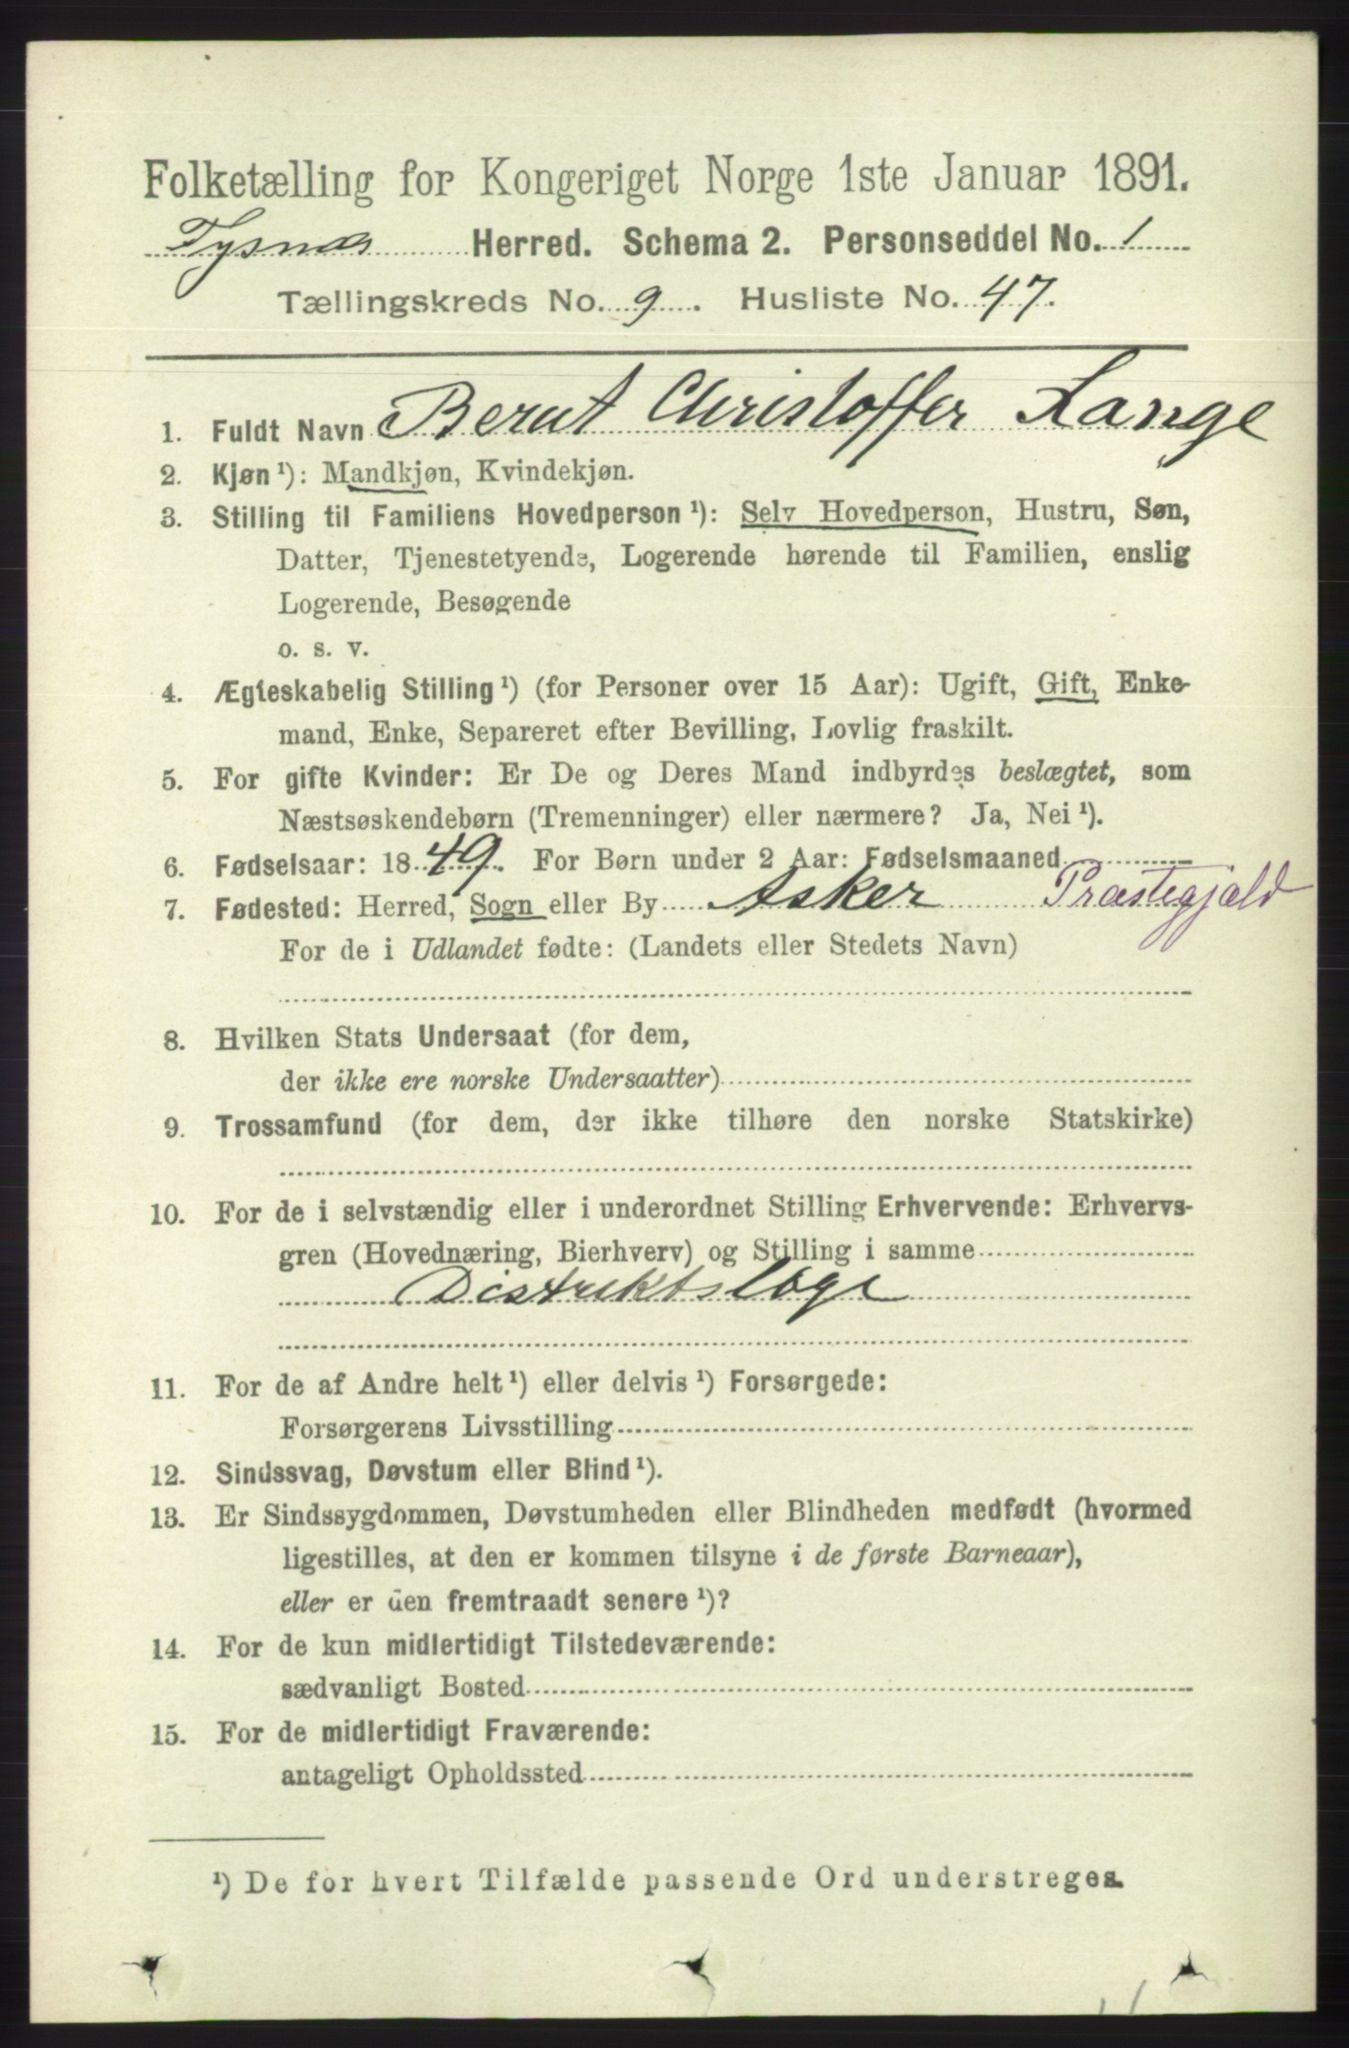 Folketælling for Kongeriget Norge 1ste Januar 1891.
Tysnæs Herred. Schema 2. Personseddel No. 1
Tællingskreds No. 9. Husliste No. 47.
1. Fuldt Navn Bernt Christoffer Lange
2. Kjøn¹): Mandkjøn, Kvindekjøn.
3. Stilling til Familiens Hovedperson¹): Selv Hovedperson, Hustru, Søn,
Datter, Tjenestetyende, Logerende hørende til Familien, enslig
Logerende, Besøgende
o. s. v.
4. Ægteskabelig Stilling¹) (for Personer over 15 Aar): Ugift, Gift, Enke-
mand, Enke, Separeret efter Bevilling, Lovlig fraskilt.
5. For gifte Kvinder: Er De og Deres Mand indbyrdes beslægtet, som
Næstsøskendebørn (Tremenninger) eller nærmere? Ja, Nei¹).
6. Fødselsaar: 1849. For Børn under 2 Aar: Fødselsmaaned
7. Fødested: Herred, Sogn eller By Asker Præstegjæld
For de i Udlandet fødte: (Landets eller Stedets Navn)
8. Hvilken Stats Undersaat (for dem,
der ikke ere norske Undersaatter)
9. Trossamfund (for dem, der ikke tilhøre den norske Statskirke)
10. For de i selvstændig eller i underordnet Stilling Erhvervende: Erhvervs-
gren (Hovednæring, Bierhverv) og Stilling i samme
Distriktslæge
11. For de af Andre helt¹) eller delvis¹) Forsørgede:
Forsørgerens Livsstilling
12. Sindssvag, Døvstum eller Blind¹).
13. Er Sindssygdommen, Døvstumheden eller Blindheden medfødt (hvormed
ligestilles, at den er kommen tilsyne i de første Barneaar),
eller er den fremtraadt senere¹)?
14. For de kun midlertidigt Tilstedeværende:
sædvanligt Bosted
15. For de midlertidigt Fraværende:
antageligt Opholdssted
¹) De for hvert Tilfælde passende Ord understreges.